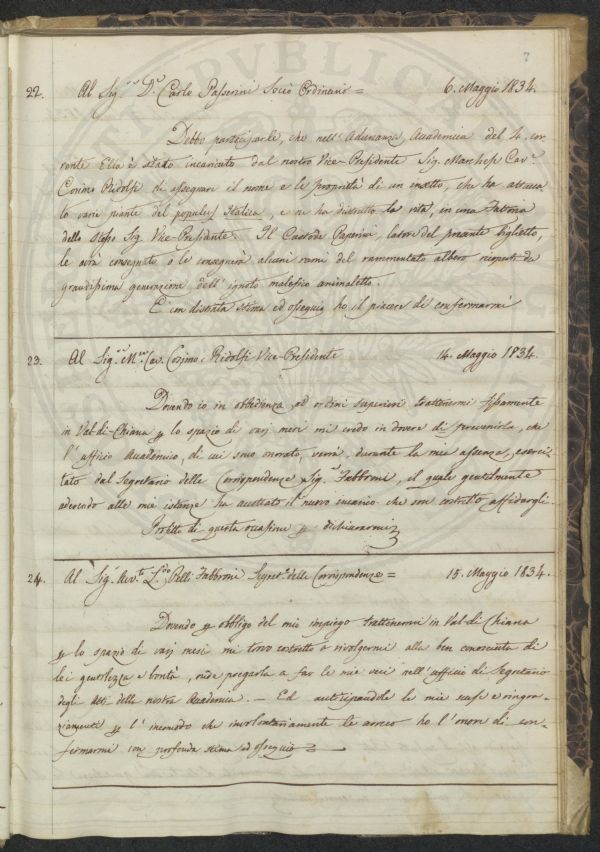 7
22. Al Sig.r D.r Carlo Passerini Socio Ordinario = 6. Maggio 1834.
Debbo parteciparle, che nell'Adunanza Accademica del 4. cor-
rente Ella è stato incaricato dal nostro Vice-Presidente Sig. Marchese Cav.r
Cosimo Ridolfi di assegnare il nome e le proprietà di un insetto, che ha attacca
to varie piante del populus Italica, e ne ha distrutto la vita, in una Fattoria
dello stesso Sig. Vice-Presidente. Il Custode Paperini, latore del presente biglietto,
le avrà consegnato o le consegnerà alcuni rami del rammentato albero ricoperti da
grandissima generazione dell'ignoto malefico animaletto.
E con distinta stima ed ossequio ho il piacere di confermarmi
23. Al Sig.r M.se Cav. Cosimo Ridolfi Vice-Presidente 14. Maggio 1834.
Dovendo io in obbedienza ad ordini superiori trattenermi fissamente
in Val-di-Chiana p lo spazio di varj mesi mi credo in dovere di prevenirla, che
l'uffizio Accademico, di cui sono onorato, verrà, durante la mia assenza, eserci-
tato dal Segretario delle Corrispondenze Sig.r Fabbroni, il quale gentilmente
aderendo alle mie istanze ha accettato il nuovo incarico che son costretto affidargli.
Profitto di questa occasione p dichiararmi
24. Al Sig. Avv.to L.do Pelli Fabbroni Segret.o delle Corrispondenze = 15. Maggio 1834.
Dovendo p obbligo del mio impiego trattenermi in Val di Chiana
p lo spazio di varj mesi mi trovo costretto a rivolgermi alla ben conosciuta di
lei gentilezza e bontà, onde pregarla a far le mie veci nell'uffizio di Segretario
degli Atti della nostra Accademia. — Ed anticipandole le mie scuse e ringra-
ziamenti p l'incomodo che involontariamente le arreco ho l'onore di con-
fermarmi con profonda stima ed ossequio